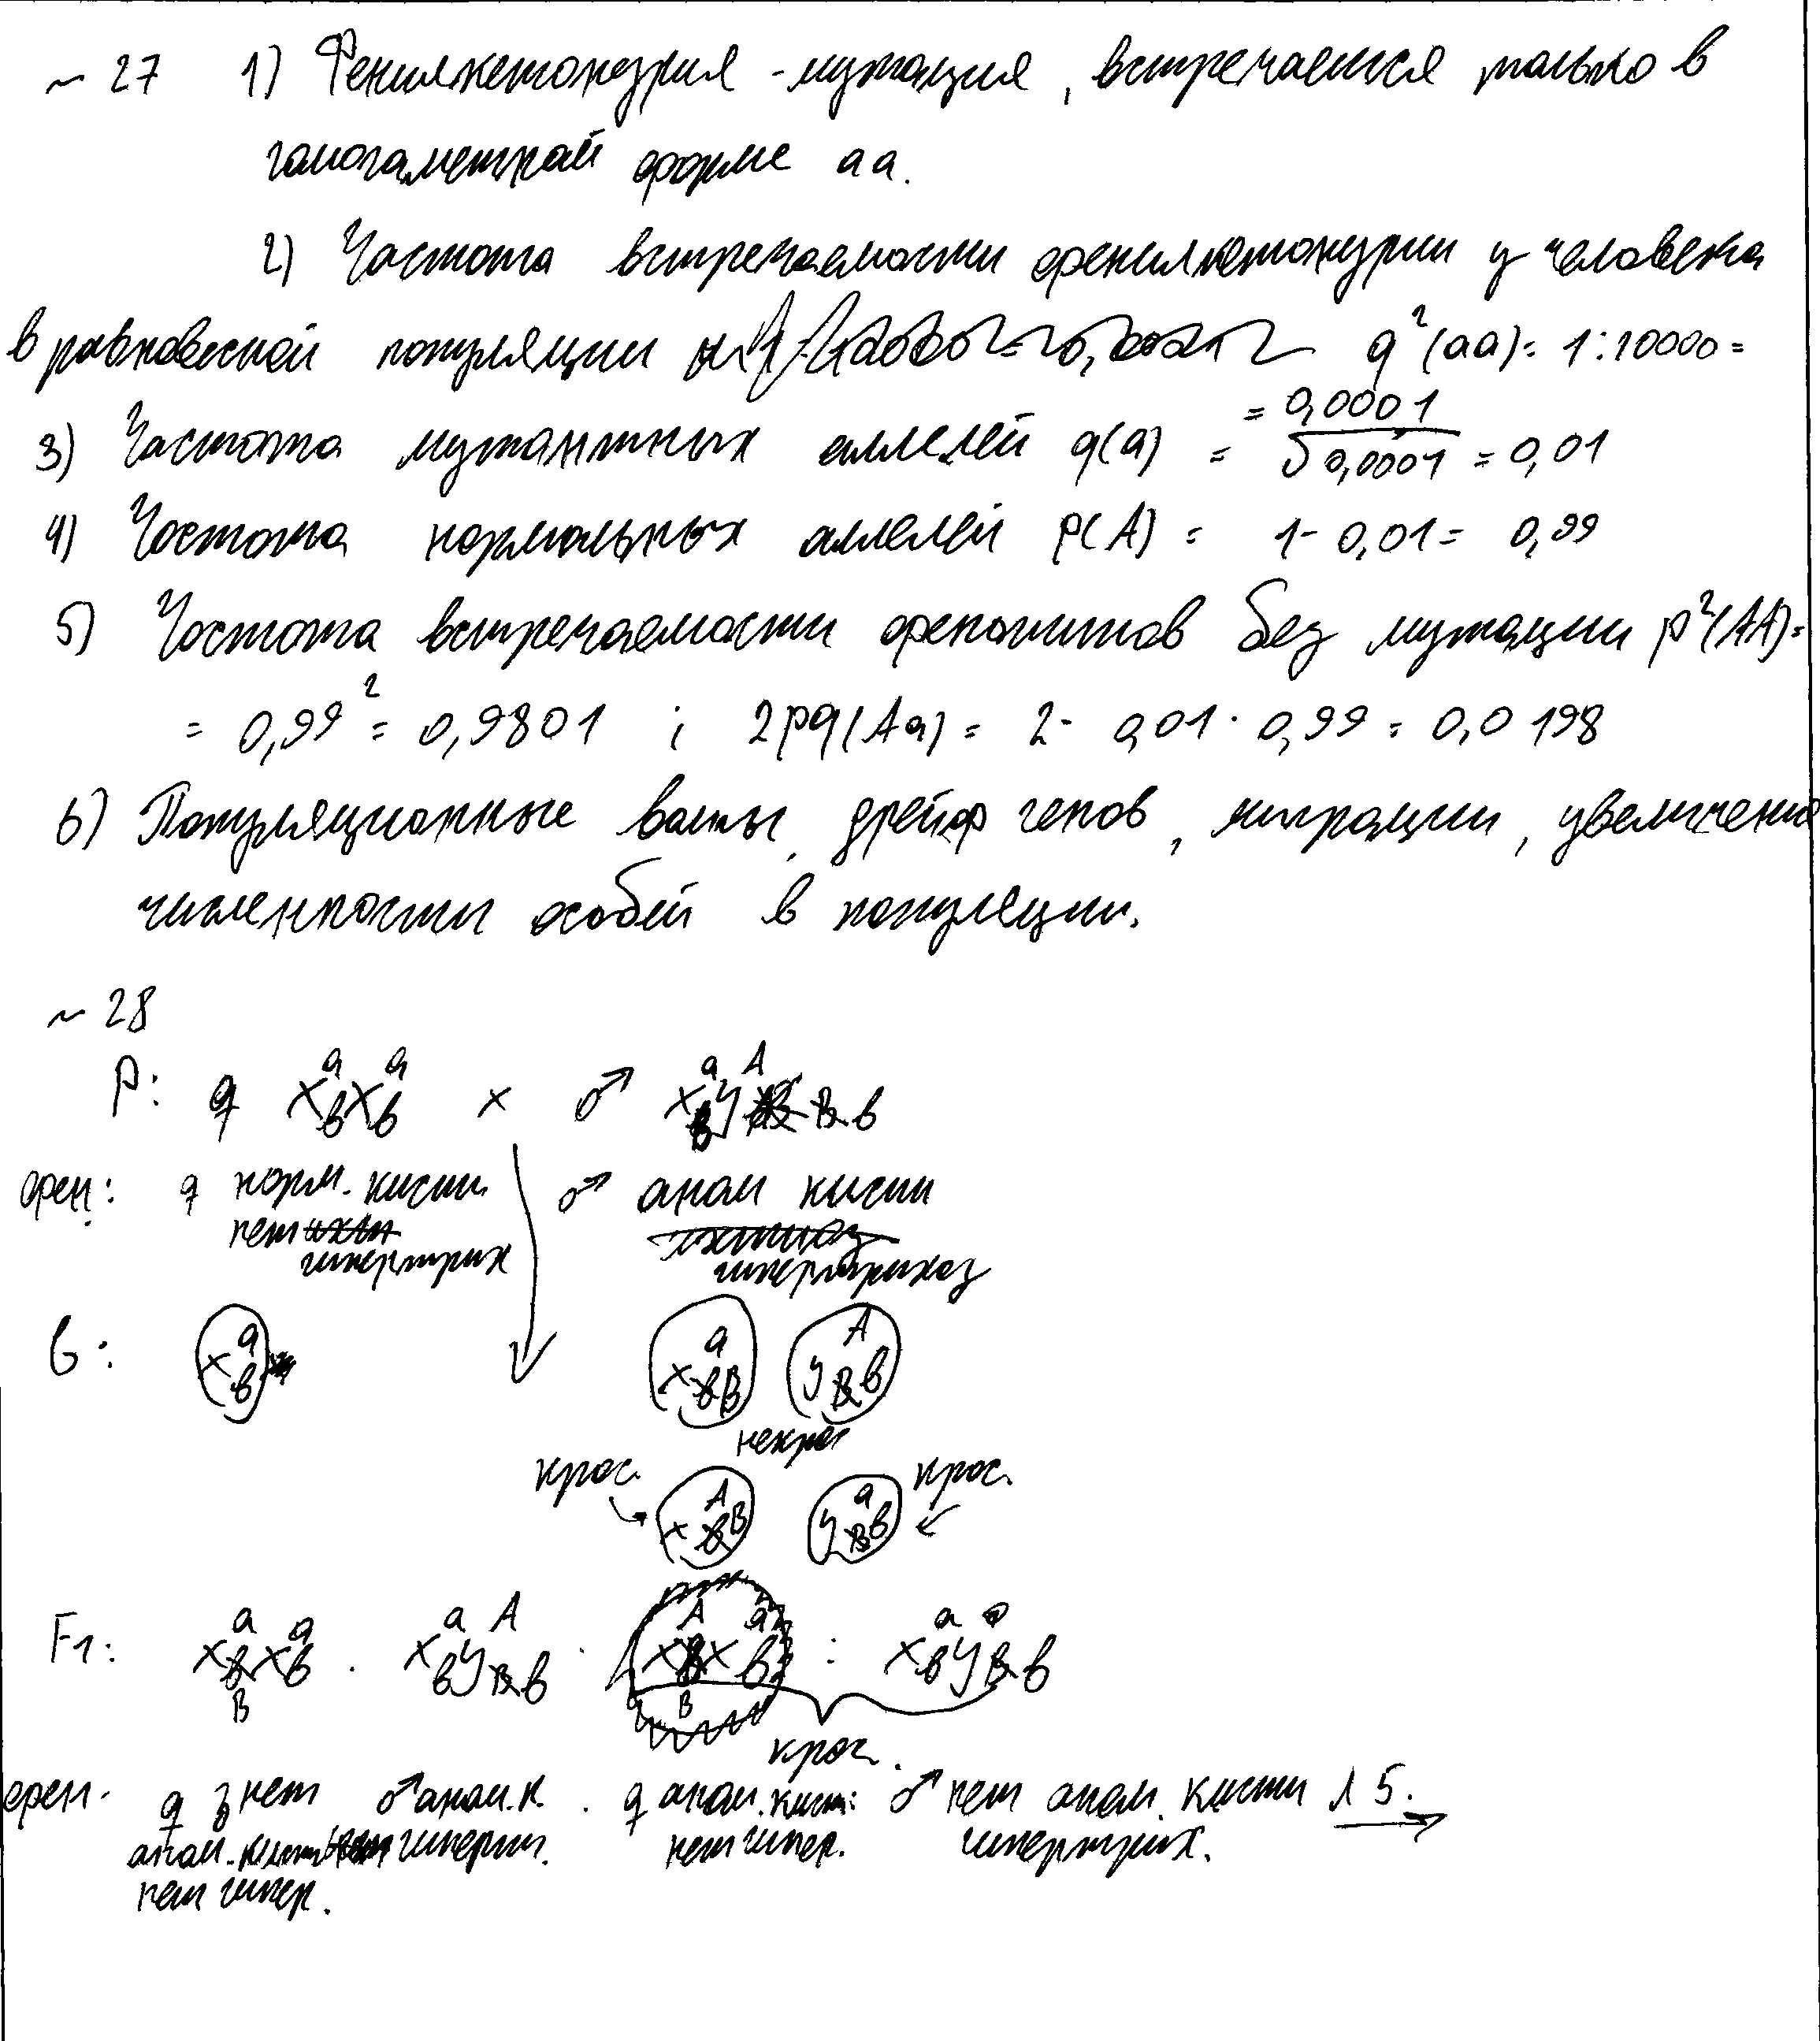 ~ 27 1) Фенилкетонурия - мутация, встречается только в
гомогаметной форме аа.
2) Частота встречаемости фенилкетонурии у человека
в равновесной популяции q²(aa) = 1:10000 =
= 0,0001
3) Частота мутантных аллелей q(a) = √0,0001 = 0,01
4) Частота нормальных аллелей p(A) = 1 - 0,01 = 0,99
5) Частота встречаемости фенотипов без мутации p²(AA) =
= 0,99² = 0,9801 ; 2pq(Aa) = 2 · 0,01 · 0,99 = 0,0198
6) Популяционные волны, дрейф генов, миграции, увеличение
численности особей в популяции.
~ 28
P: ♀ XᵃbXᵃb x ♂ XᵃBYᴬb
фен: ♀ норм. кисти ♂ аном кисти
нет гипертрих гипертрихоз
G: Xᵃb XᵃB Yᴬb
некрос
крос. XᴬB Yᵃb крос.
F1: XᵃBXᵃb . XᵃbYᴬb : XᴬBXᵃb : XᵃbYᵃb
крос.
фен. ♀ нет ♂ аном.к. . ♀ аном.кист: ♂ нет аном. кисти л 5. →
аном. кисти гиперт. нет гипер. гипертрих.
нет гипер.